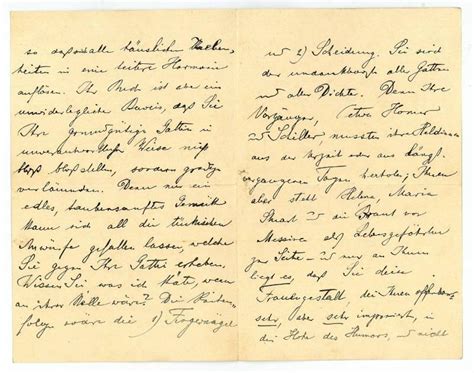 so daß alle häuslichen
heiten in eine heitere Harmonie
auflösen. Ihr Buch ist aber ein
unwiderlegliche Beweis, daß Sie
Ihre grundgütige Gattin in
unverantwortlicher Weise nicht
bloßstellen, sondern
verläumden. Denn nur ein
edles, taubensanftes Gemüth
kann sich all die tückischen
Anwürfe gefallen lassen, welche
Sie gegen Ihre Gattin erheben.
Wissen Sie, was ich thäte, wenn
an ihrer Stelle wäre? Die
folge wäre die 1)
und 2) Scheidung. Sie sind
der undankbarste aller Gatten
und aller Dichter. Denn Ihre
Vorgänger, etwa Homer
Schiller mussten ihre Heldinnen
aus der Vorzeit oder aus längst
vergangenen Tagen herholen; Ihnen
aber steht Helena, Maria
Stuart und die Braut von
Messina als Lebensgefährtin
zur Seite – und nur an Ihnen
liegt es, daß Sie diese
Frauengestalt, die Ihnen offenbar
sehr, aber sehr imponirt, in
den des Humors, und nicht